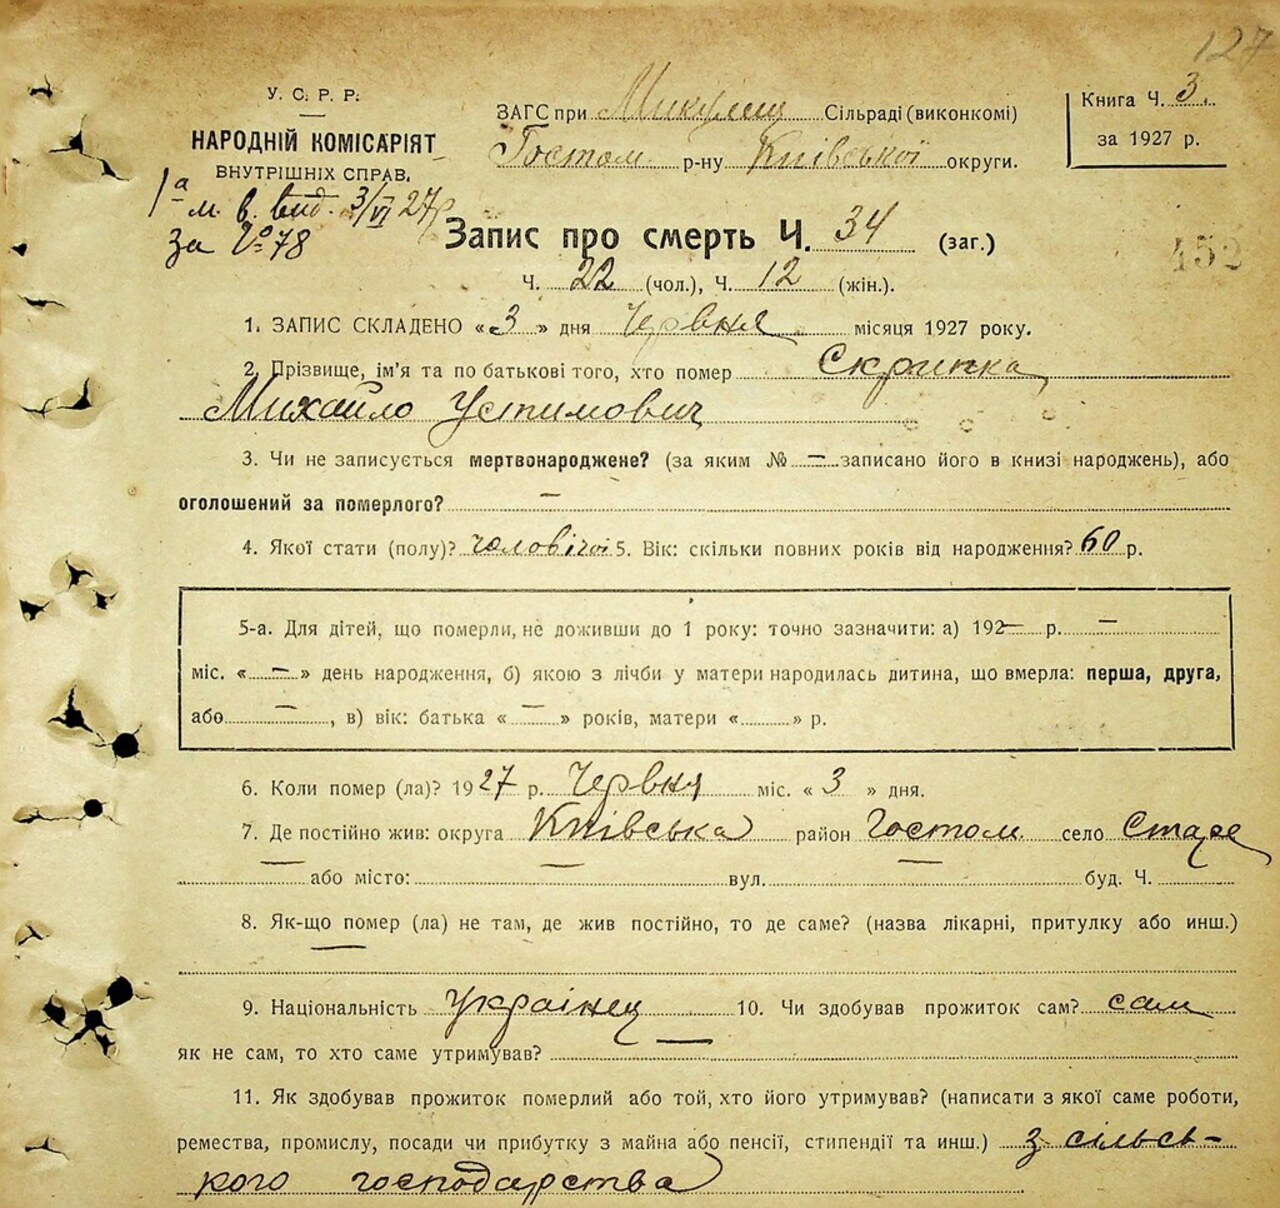 127
У. С. Р. Р.
НАРОДНІЙ КОМІСАРІЯТ
ВНУТРІШНІХ СПРАВ.
1а м. в. вид. 3/VI 27р
за № 78
ЗАГС при Микулиц Сільраді (виконкомі)
Гостом. р-ну Київської округи.
Книга Ч. 3.
за 1927 р.
Запис про смерть Ч. 34 (заг.)
452
Ч. 22 (чол.), Ч. 12 (жін.).
1. ЗАПИС СКЛАДЕНО «3» дня Червня місяця 1927 року.
2. Прізвище, ім'я та по батькові того, хто помер Скрипка
Михайло Устимович
3. Чи не записується мертвонароджене? (за яким № — записано його в книзі народжень), або
оголошений за померлого? —
4. Якої стати (полу)? чоловічої 5. Вік: скільки повних років від народження? 60 р.
5-а. Для дітей, що померли, не доживши до 1 року: точно зазначити: а) 192— р. —
міс. «—» день народження, б) якою з лічби у матери народилась дитина, що вмерла: перша, друга,
або —, в) вік: батька «—» років, матери «» р.
6. Коли помер (ла)? 1927 р. Червня міс. «3» дня.
7. Де постійно жив: округа Київська район Гостом. село Старе
— або місто: — вул. — буд. Ч.
8. Як-що помер (ла) не там, де жив постійно, то де саме? (назва лікарні, притулку або инш.)
—
9. Національність Українец 10. Чи здобував прожиток сам? сам
як не сам, то хто саме утримував? —
11. Як здобував прожиток померлий або той, хто його утримував? (написати з якої саме роботи,
ремества, промислу, посади чи прибутку з майна або пенсії, стипендії та инш.) з сільсь-
кого господарства